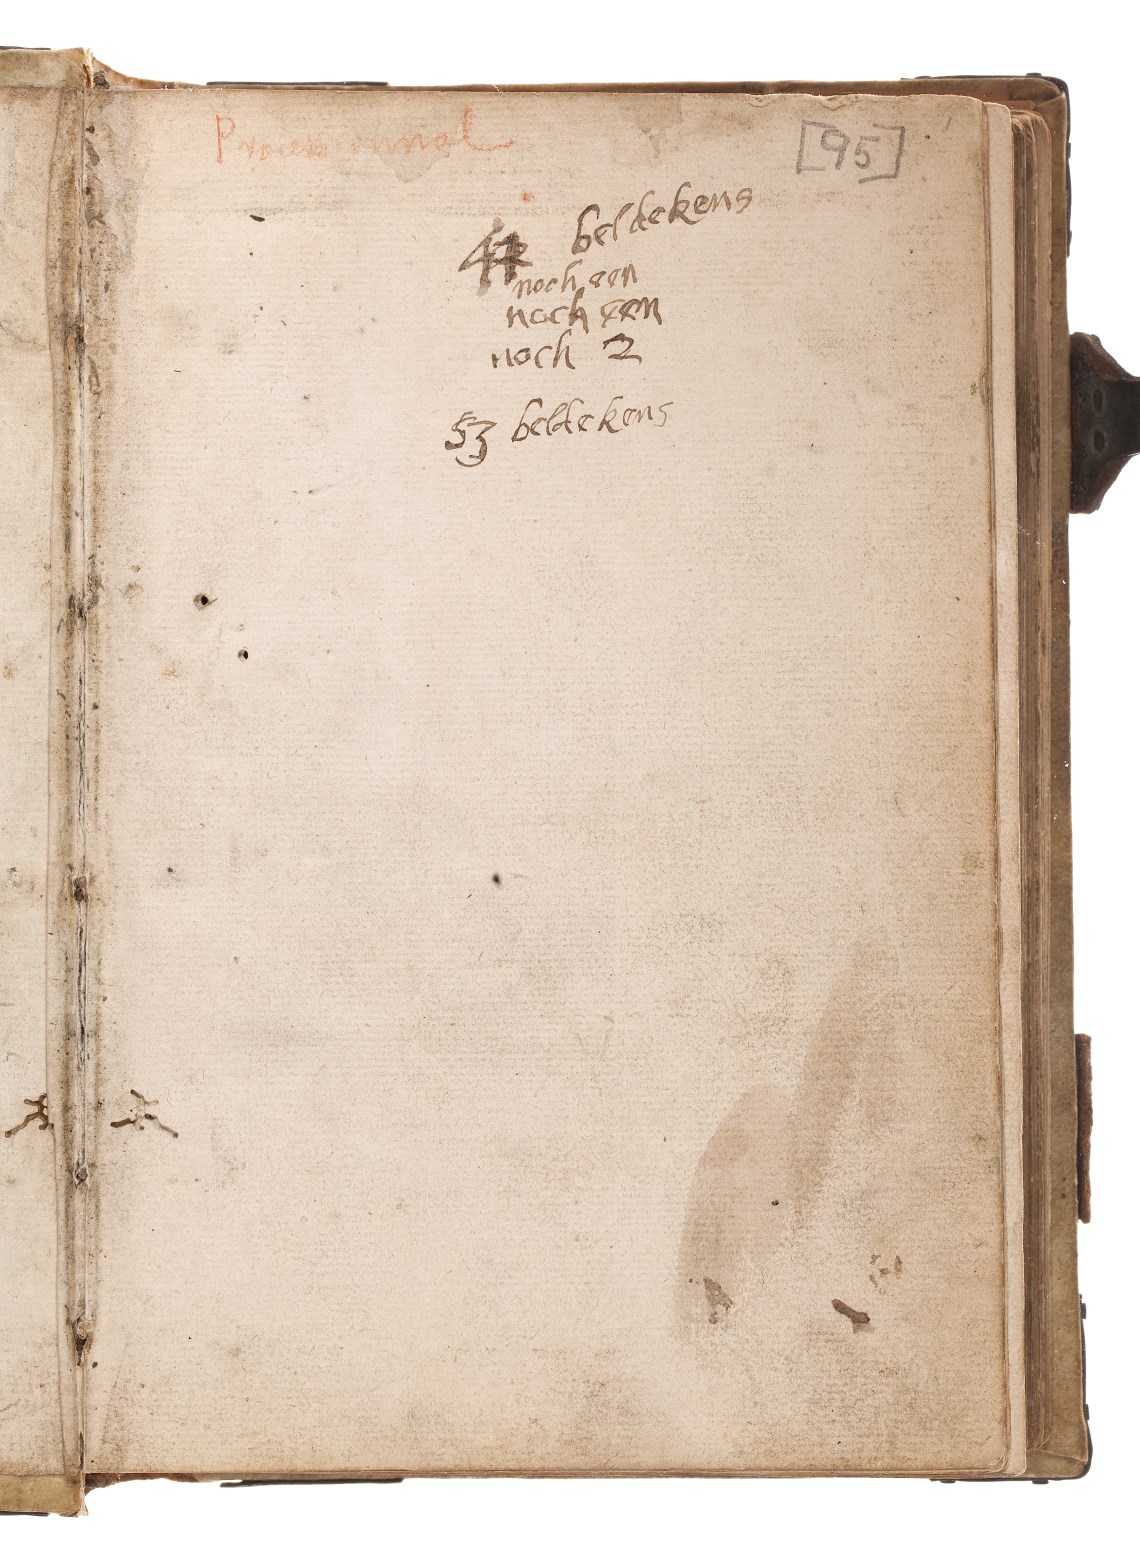 Processionnal
[95]
1
beldekens
noch een
noch een
noch 2
53 beldekens